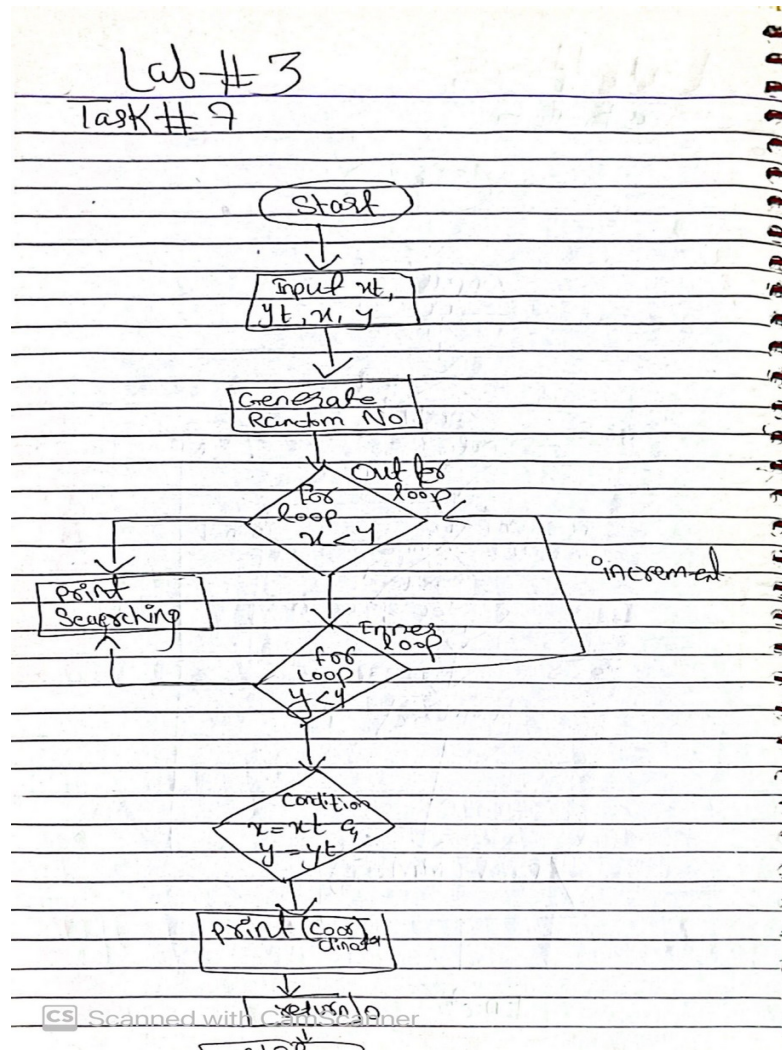 Lab # 3
Task # 7
Start
Input xt,
yt, x, y
Generate
Random No
Out for
loop
For
loop
x < 4
increment
print
Inner
loop
for
Loop
y < 4
Condition
x = xt &
y = yt
print (Coor
dinates
return 0
CS Scanned with CamScanner